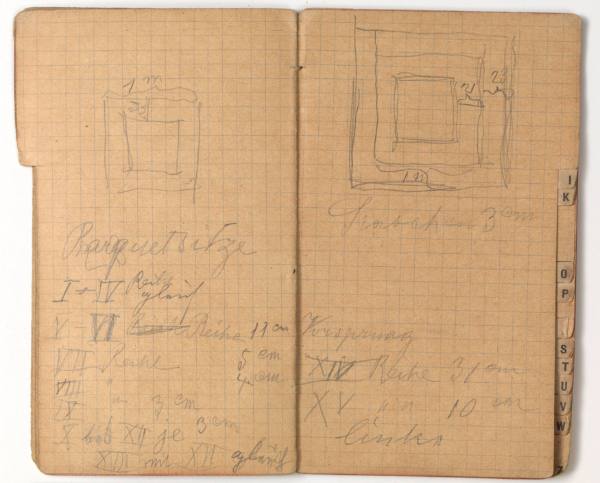 1 m
25
Parquetsitze
I + IV Reihe gleich
V - VI Reihe 11 cm
VII Reihe 5 cm
VIII " 4 cm
IX " 3 cm
X bis XII je 3 cm
XIII mit XII gleich
25
21
1 m
3 cm
Vorsprung
XIV Reihe 31 cm
XV " 10 cm
links
I
K
O
P
S
T
U
V
W
Z